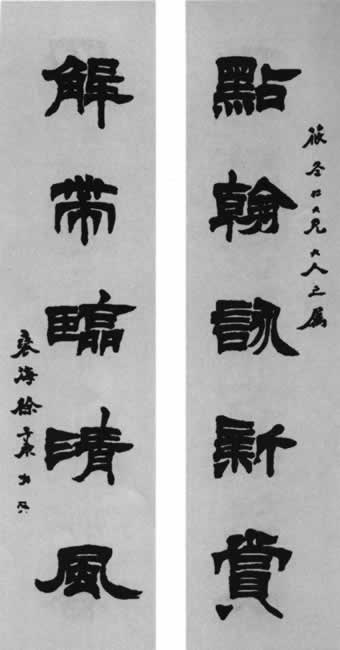 筱冬仁大兄大人之属
點翰詠新賞
解帶臨清風
褎海徐三庚